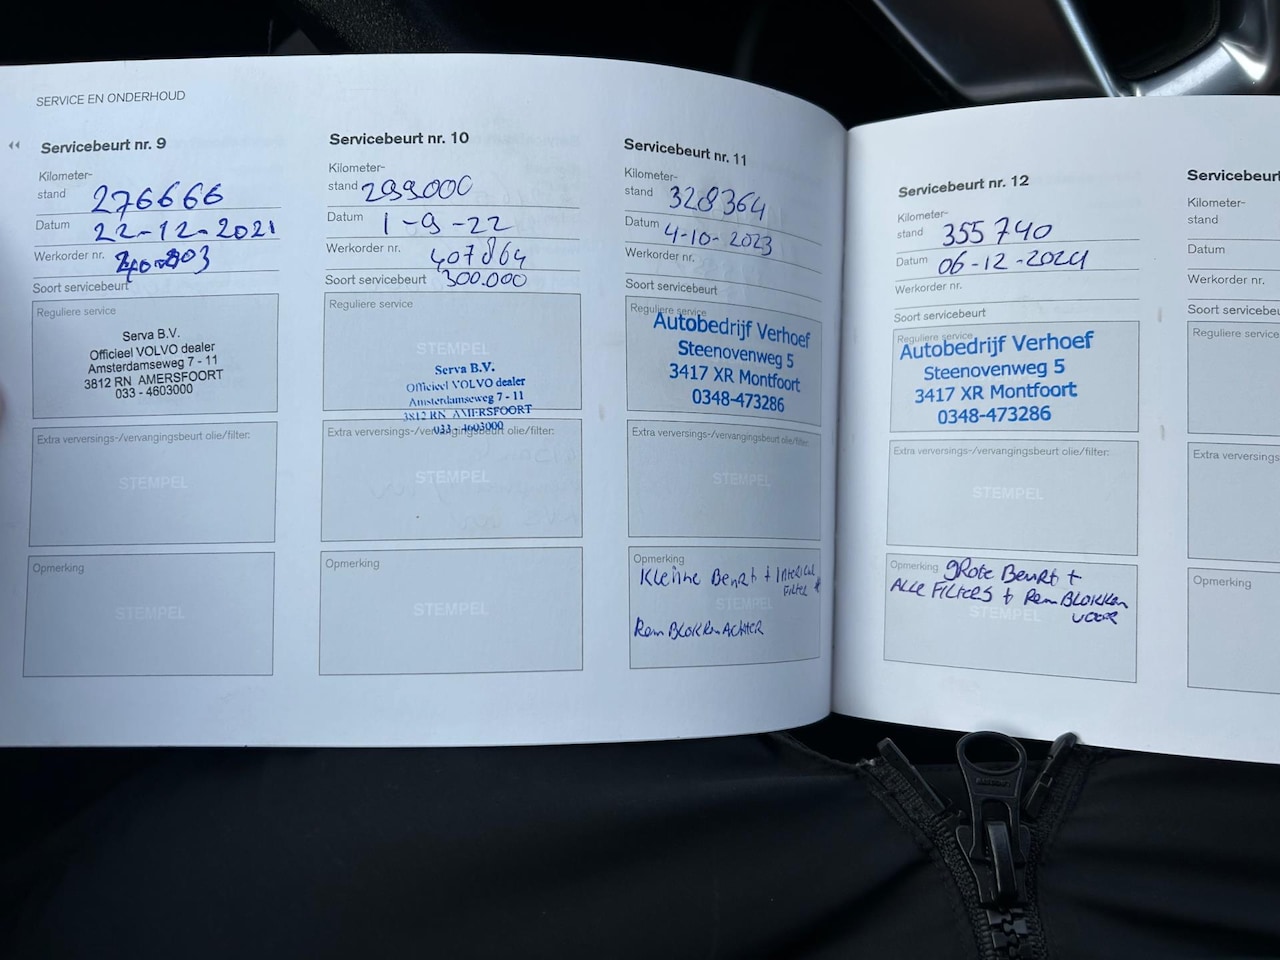 SERVICE EN ONDERHOUD
Servicebeurt nr. 9
Kilometer-
stand 276666
Datum 22-12-2021
Werkorder nr.
Soort servicebeurt
Reguliere service
Serva B.V.
Officieel VOLVO dealer
Amsterdamseweg 7 - 11
3812 RN AMERSFOORT
033 - 4603000
Extra verversings-/vervangingsbeurt olie/filter:
STEMPEL
Opmerking
STEMPEL
Servicebeurt nr. 10
Kilometer-
stand 299000
Datum 1-9-22
Werkorder nr. 407864
Soort servicebeurt 300.000
Reguliere service
STEMPEL
Serva B.V.
Officieel VOLVO dealer
Amsterdamseweg 7 - 11
3812 RN AMERSFOORT
033 - 4603000
Extra verversings-/vervangingsbeurt olie/filter:
STEMPEL
Opmerking
STEMPEL
Servicebeurt nr. 11
Kilometer-
stand 328364
Datum 4-10-2023
Werkorder nr.
Soort servicebeurt
Reguliere service
Autobedrijf Verhoef
Steenovenweg 5
3417 XR Montfoort
0348-473286
Extra verversings-/vervangingsbeurt olie/filter:
STEMPEL
Opmerking
Kleine Beurt +
Filter
STEMPEL
RemBlokken Achter
Servicebeurt nr. 12
Kilometer-
stand 355740
Datum 06-12-2024
Werkorder nr.
Soort servicebeurt
Reguliere service
Autobedrijf Verhoef
Steenovenweg 5
3417 XR Montfoort
0348-473286
Extra verversings-/vervangingsbeurt olie/filter:
STEMPEL
Opmerking grote Beurt +
Alle Filters + RemBlokken
STEMPEL
voor
Servicebeurt
Kilometer-
stand
Datum
Werkorder nr.
Soort servicebe
Reguliere service
Extra verversings
Opmerking